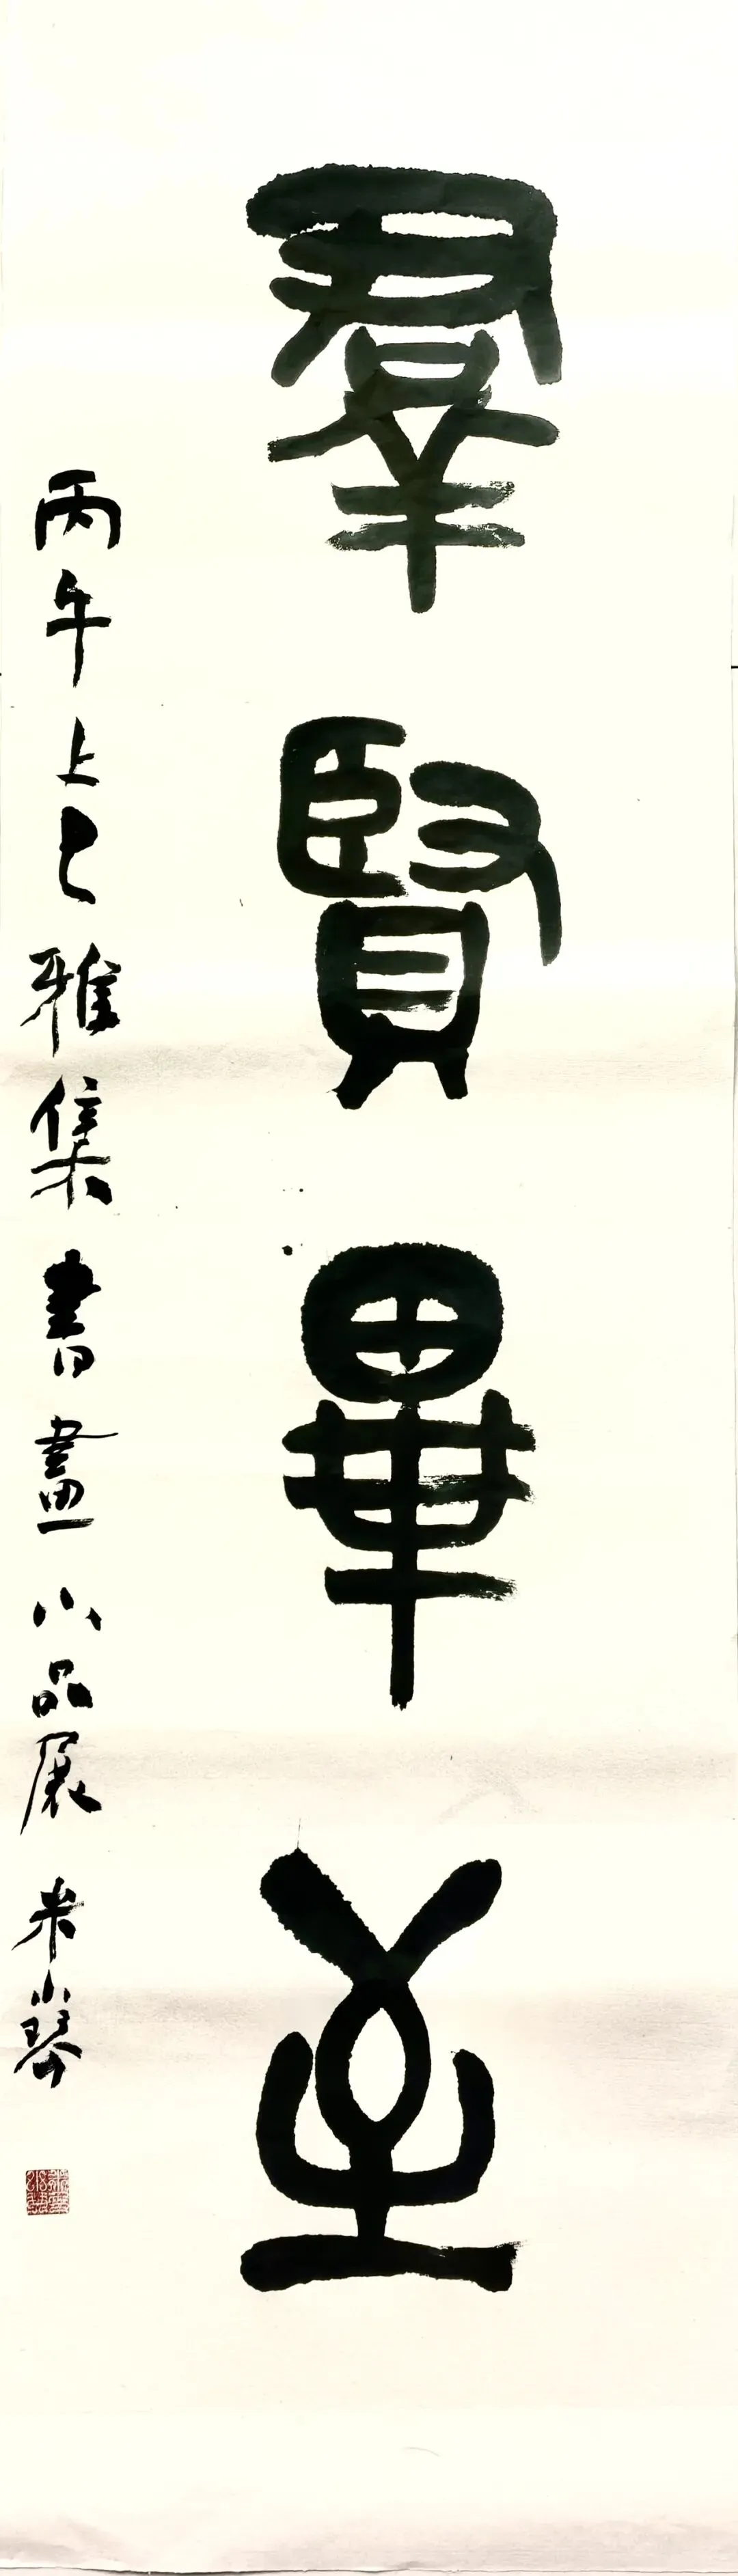 羣賢畢至
丙午上巳雅集書畫小品展 米小琴